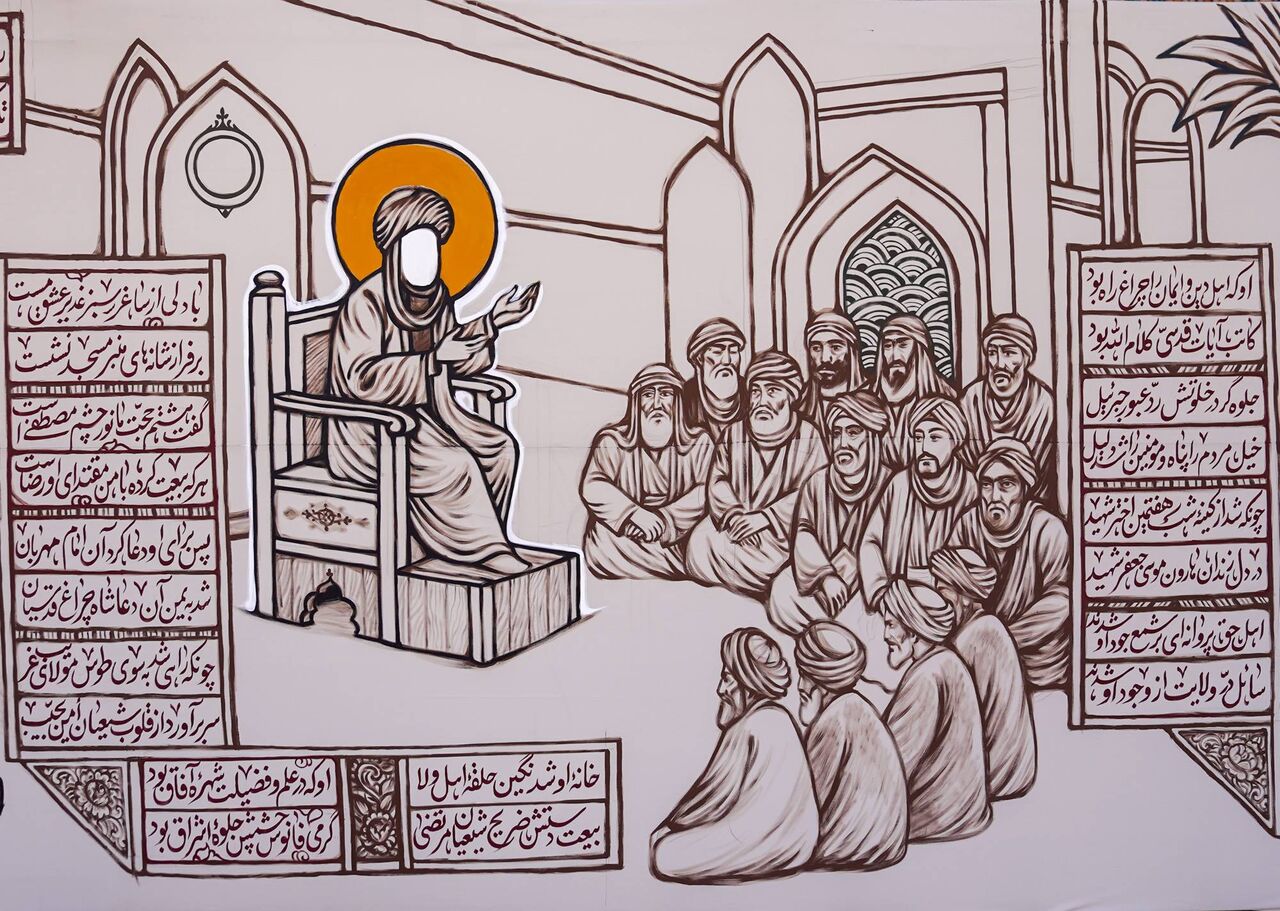 او که اهل دین و ایمان را چراغ راه بود
کاتب آیات قدسیّ کلام الله بود
جلوه گر در خلوتش ردّ عبور جبرئیل
خیل مردم را پناه و مومنین را شد دلیل
چونکه شد از کینهٔ شب هفتمین اختر شهید
در دل زندان هارون موسی جعفر شهید
اهل حق پروانه ای بر شمع جود او شدند
سائل درّ ولایت از وجود او شدند
خانهٔ او شد نگین حلقهٔ اهل ولا
بیعت دستش ضریح شیعیان مرتضی
او که در علم و فضیلت شهرهٔ آفاق بود
گرمی فانوس چشمش جلوهٔ اشراق بود
با دلی از ساغر سبز غدیر عشق مست
بر فراز شانه های منبر مسجد نشست
گفت هشتم حجّت ما نور چشم مصطفی است
هر که بیعت کرده با من مقتدای او رضاست
پس برای او دعا کرد آن امام مهربان
شد به یمن آن دعا شاه چراغ قدسیان
چونکه راهی شد به سوی طوس مولای غریب
سر برآورد از قلوب شیعیان امن یجیب